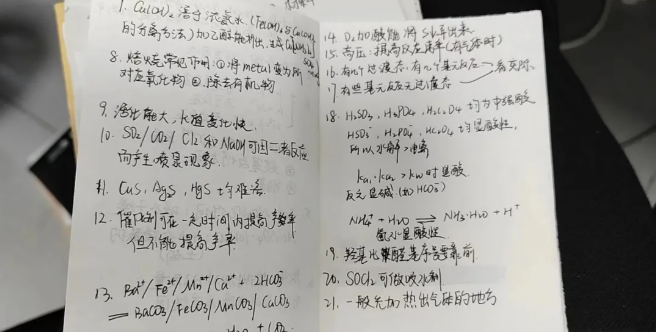 1. Cu(OH)₂ 溶于浓氨水 (Fe(OH)₃与Cu(OH)₂
的分离方法) 加乙醇能析出
8. 焙烧常见作用: ① 将metal变为所
对应氧化物 ② 除去有机物
9. 活化能大, K值变化快.
10. SO₂/CO₂/Cl₂ 和NaOH可因二者反应
而产生喷泉现象.
11. CuS, Ag₂S, HgS 均难溶
12. 催化剂可在一定时间内提高产率
但不能提高产率
13. Ba²⁺/Fe²⁺/Mn²⁺/Ca²⁺ + 2HCO₃⁻
= BaCO₃/FeCO₃/MnCO₃/CaCO₃
14. O₂加酸能将
15. 高压: 提高反应速率(有气体时)
16. 有几个过渡态, 有几个基元反应
17. 有些基元反应无过渡态
18. H₂SO₃, H₃PO₄, H₂C₂O₄ 均为中强酸
HSO₃⁻, H₂PO₄⁻, HC₂O₄⁻ 均显酸性,
所以
Ka₁·Ka₂ > Kw 时显酸
反之显碱 (如HCO₃⁻)
NH₄⁺ + H₂O ⇌ NH₃·H₂O + H⁺
氨水显碱性
19. 羟基比
20. SOCl₂ 可做吸水剂
21. 一般先加热出气体的地方